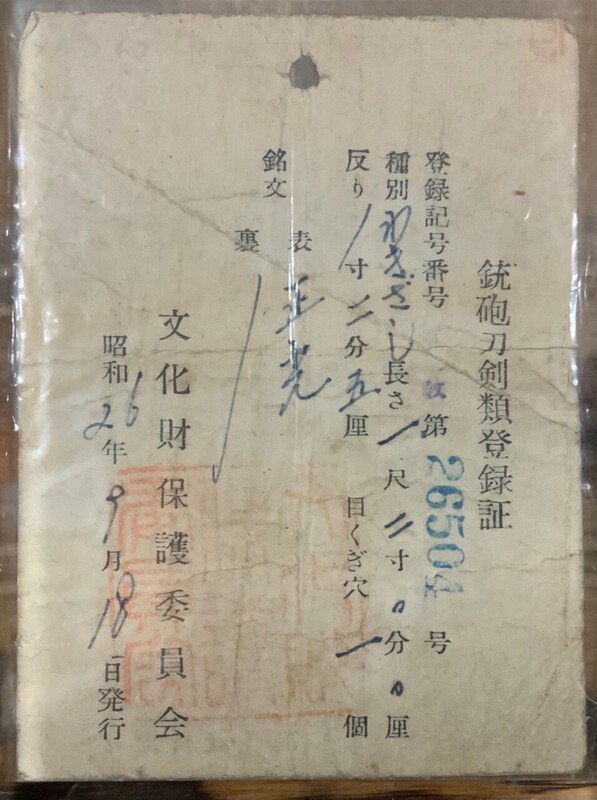 銃砲刀剣類登録証
登録記号番号 第 26504 号
種別 わきざし 長さ 一 尺 二 寸 0 分 0 厘
反り / 寸 二 分 五 厘 目くぎ穴 一 個
銘文
表 正光
裏 /
文化財保護委員会
昭和 26 年 9 月 18 日発行